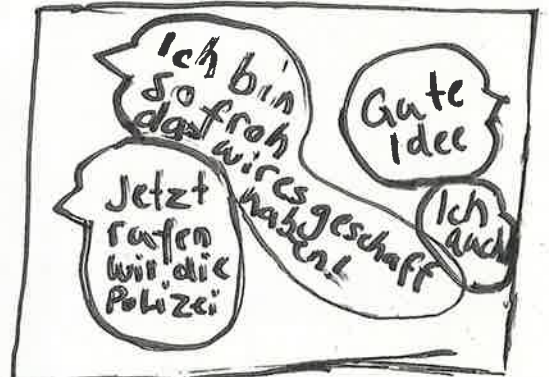 Ich bin
so froh
das wir es geschaff
haben!
Gute
Idee
Ich
auch
Jetzt
rufen
wir die
Polizei